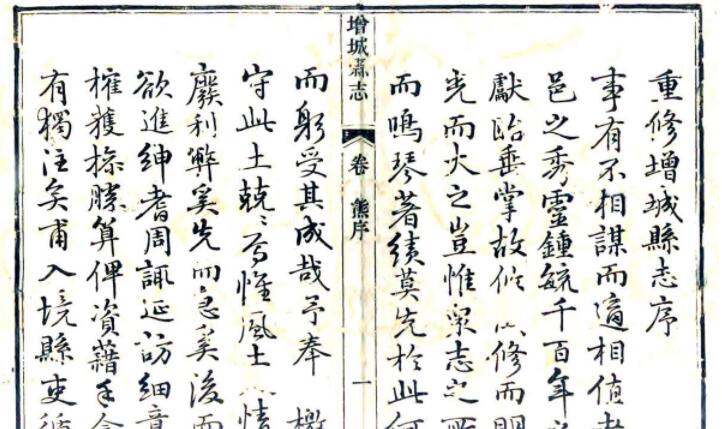 重修增城縣志序
事有不相謀而適相值者
邑之秀靈鍾毓千百年
獻貽垂掌故修以修而明
光而大之豈惟泉志之
而鳴琴著績莫先於此何
增城縣志
卷
熊序
一
而躬受其成哉予奉 檄
守此土兢〻焉惟風土人情
廢利弊奚先而急奚後而
欲進紳耆周諏延訪細
權獲操勝算俾資藉手
有獨注矣甫入境縣吏循